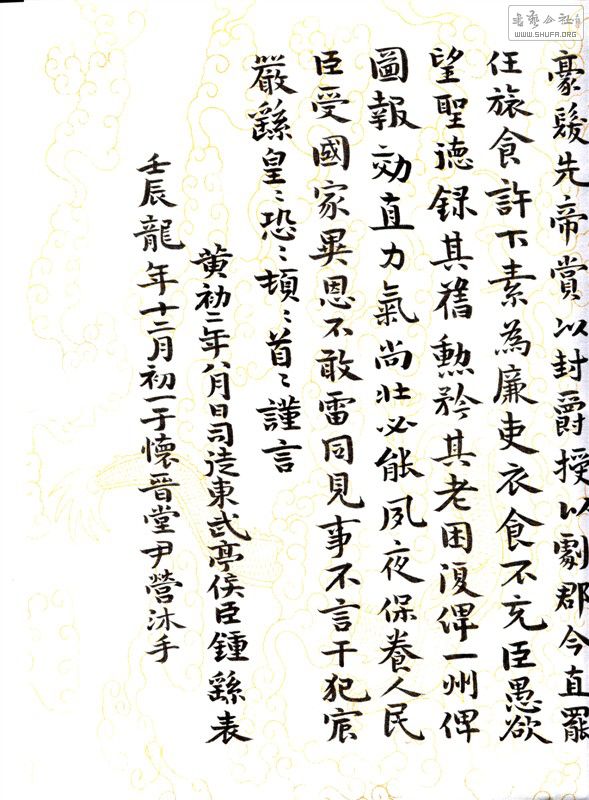 豪髮先帝賞以封爵授以劇郡今直罷
任旅食許下素為廉吏衣食不充臣愚欲
望聖德録其舊勲矜其老困復俾一州俾
圖報効直力氣尚壯必能夙夜保養人民
臣受國家異恩不敢雷同見事不言干犯宸
嚴繇皇〻恐〻頓〻首〻謹言
黃初二年八月日司徒東武亭侯臣鍾繇表
壬辰龍年十二月初一于懷晉堂尹營沐手
書藝公社
WWW.SHUFA.ORG